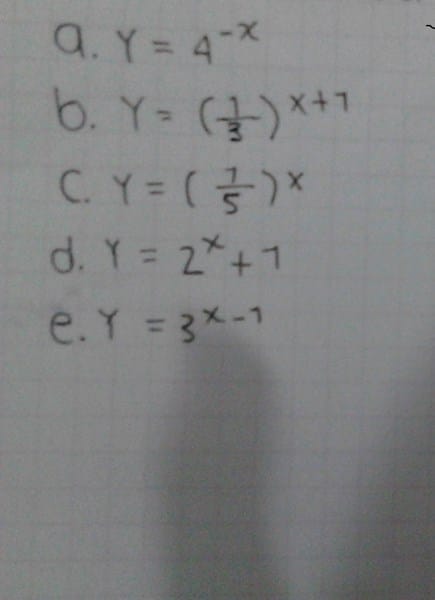 a. Y = 4^-x
b. Y = (1/3)^x+1
c. Y = (1/5)^x
d. Y = 2^x + 1
e. Y = 3^x-1